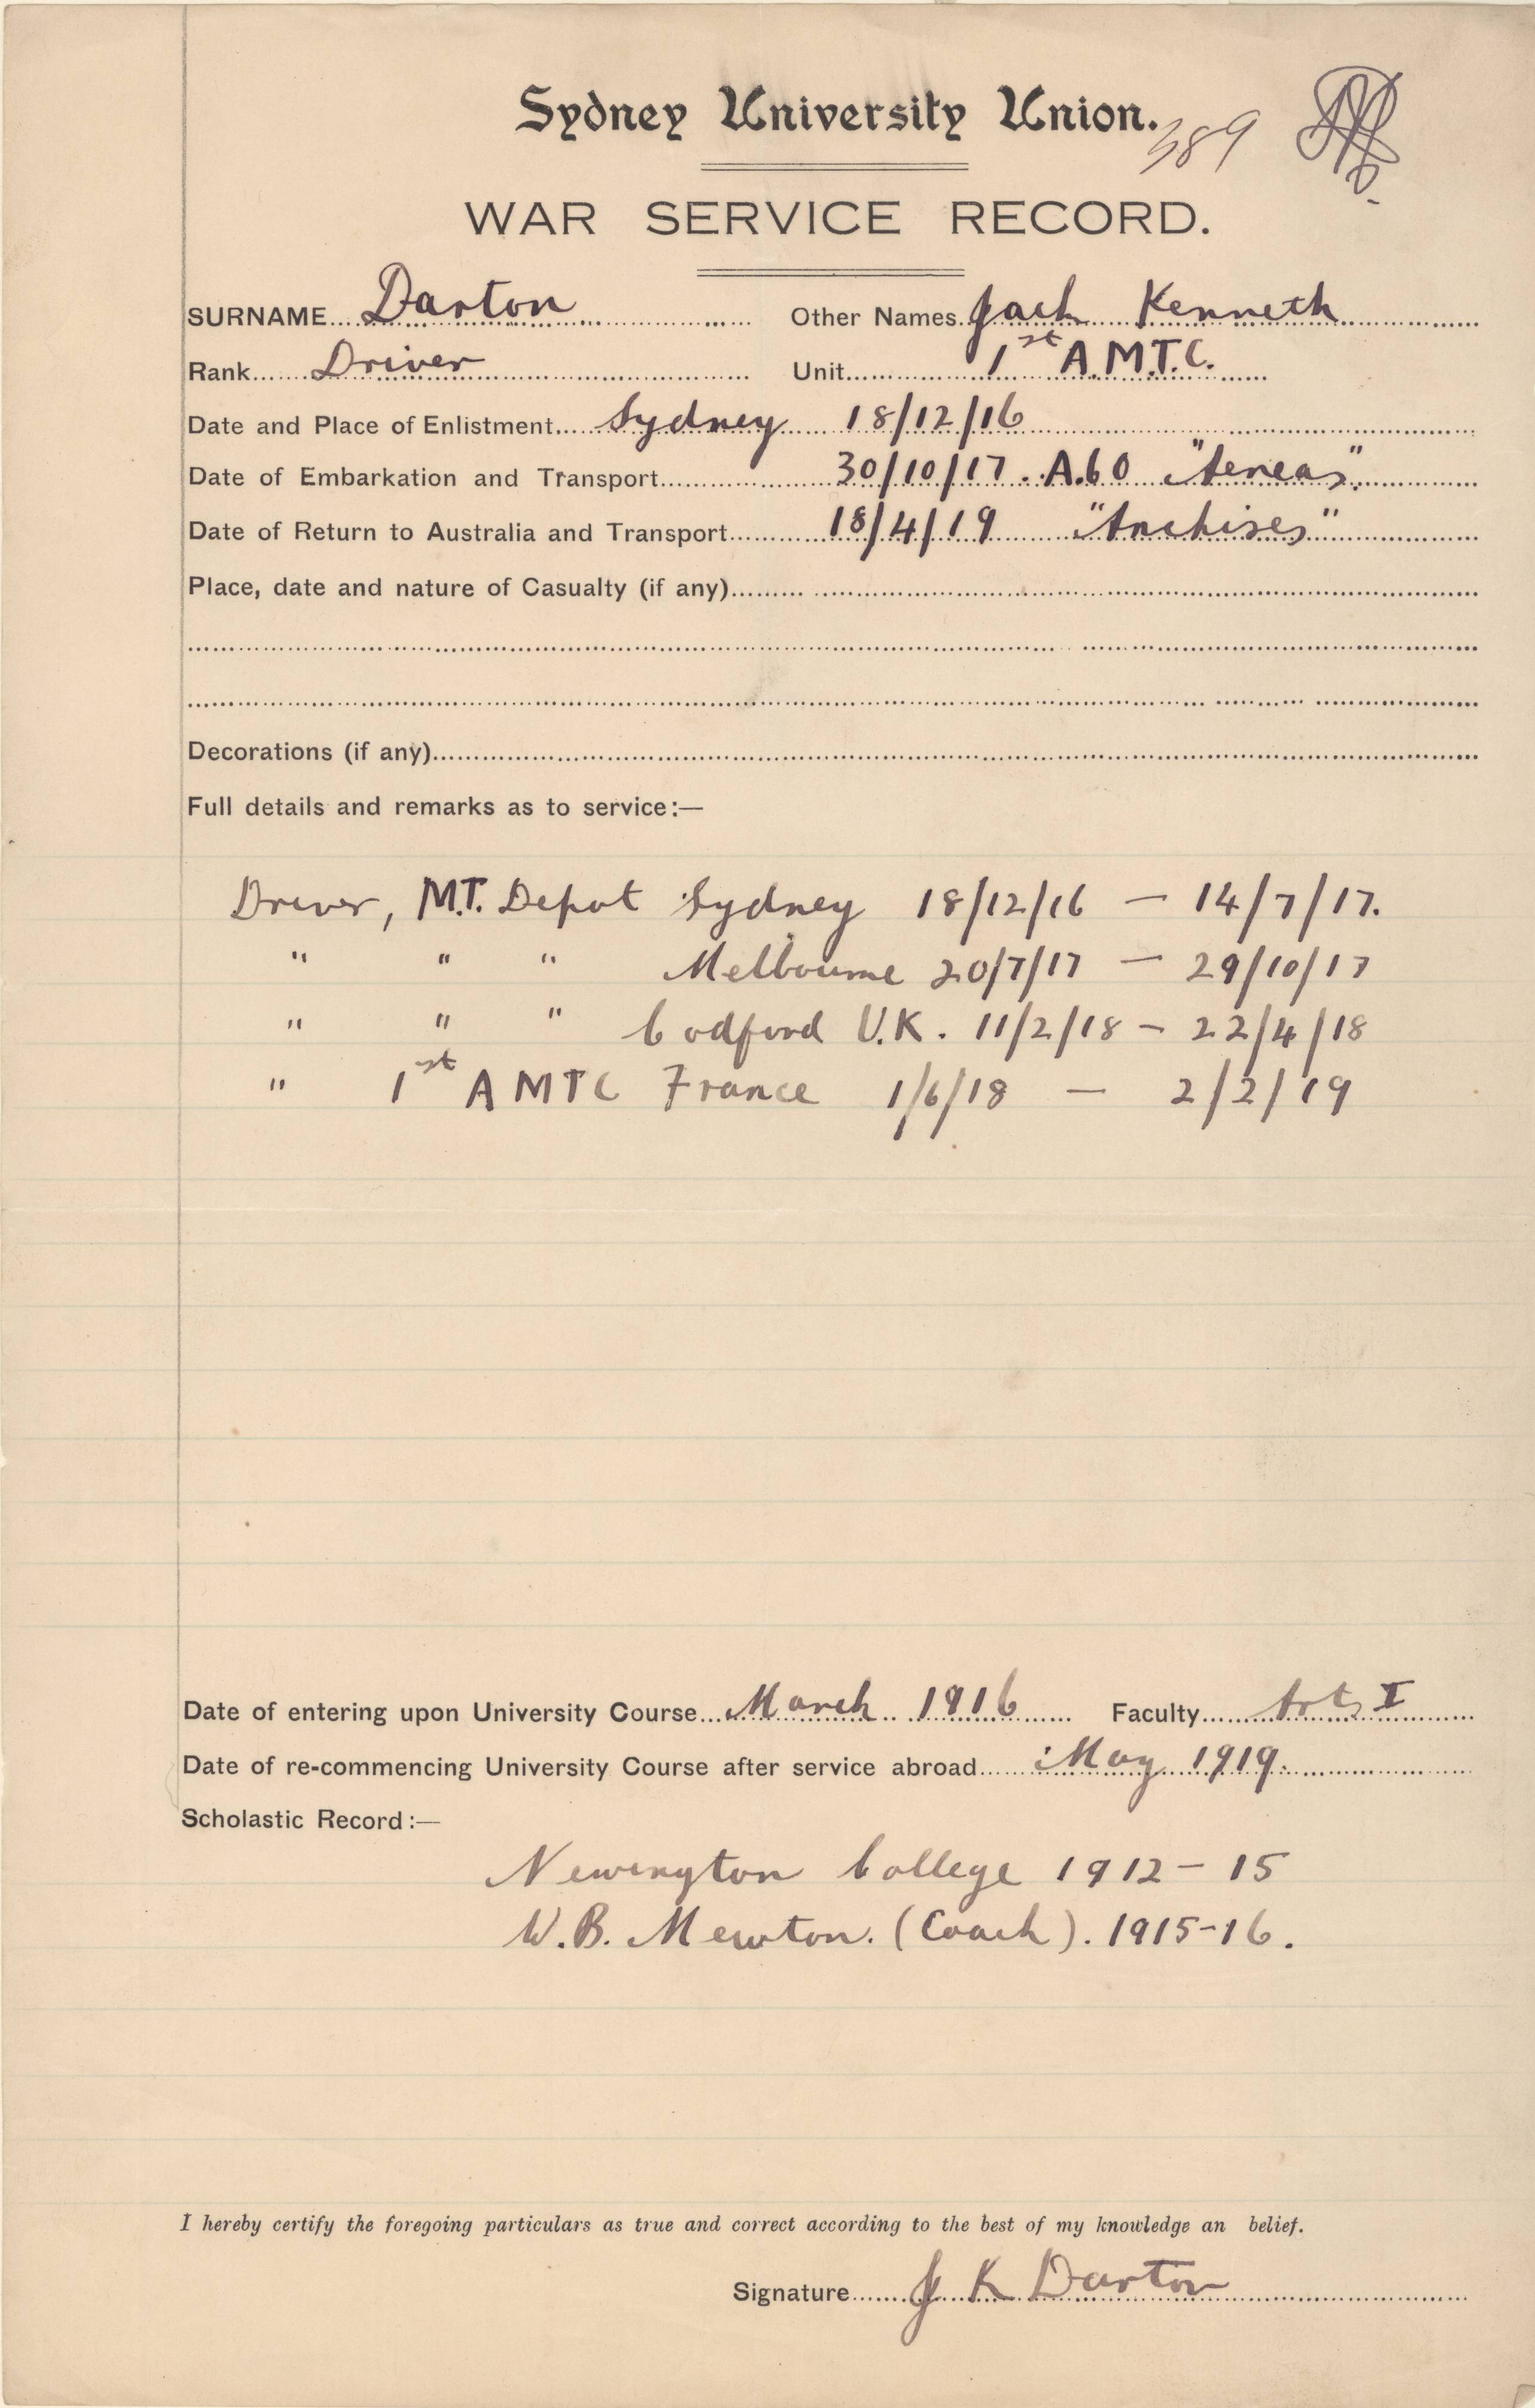 Sydney University Union.
389
WAR SERVICE RECORD.
SURNAME Darton Other Names Jack Kenneth
Rank Driver Unit 1st A.M.T.C.
Date and Place of Enlistment Sydney 18/12/16
Date of Embarkation and Transport 30/10/17. A.60 "Aeneas".
Date of Return to Australia and Transport 18/4/19 "Anchises"
Place, date and nature of Casualty (if any)
Decorations (if any)
Full details and remarks as to service:—
Driver, M.T. Depot Sydney 18/12/16 — 14/7/17.
" " " Melbourne 20/7/17 — 29/10/17
" " " Codford U.K. 11/2/18 — 22/4/18
" 1st AMTC France 1/6/18 — 2/2/19
Date of entering upon University Course March 1916 Faculty Arts I
Date of re-commencing University Course after service abroad May 1919.
Scholastic Record:—
Newington College 1912-15
W.B. Mewton. (Coach). 1915-16.
I hereby certify the foregoing particulars as true and correct according to the best of my knowledge an belief.
Signature J K Darton